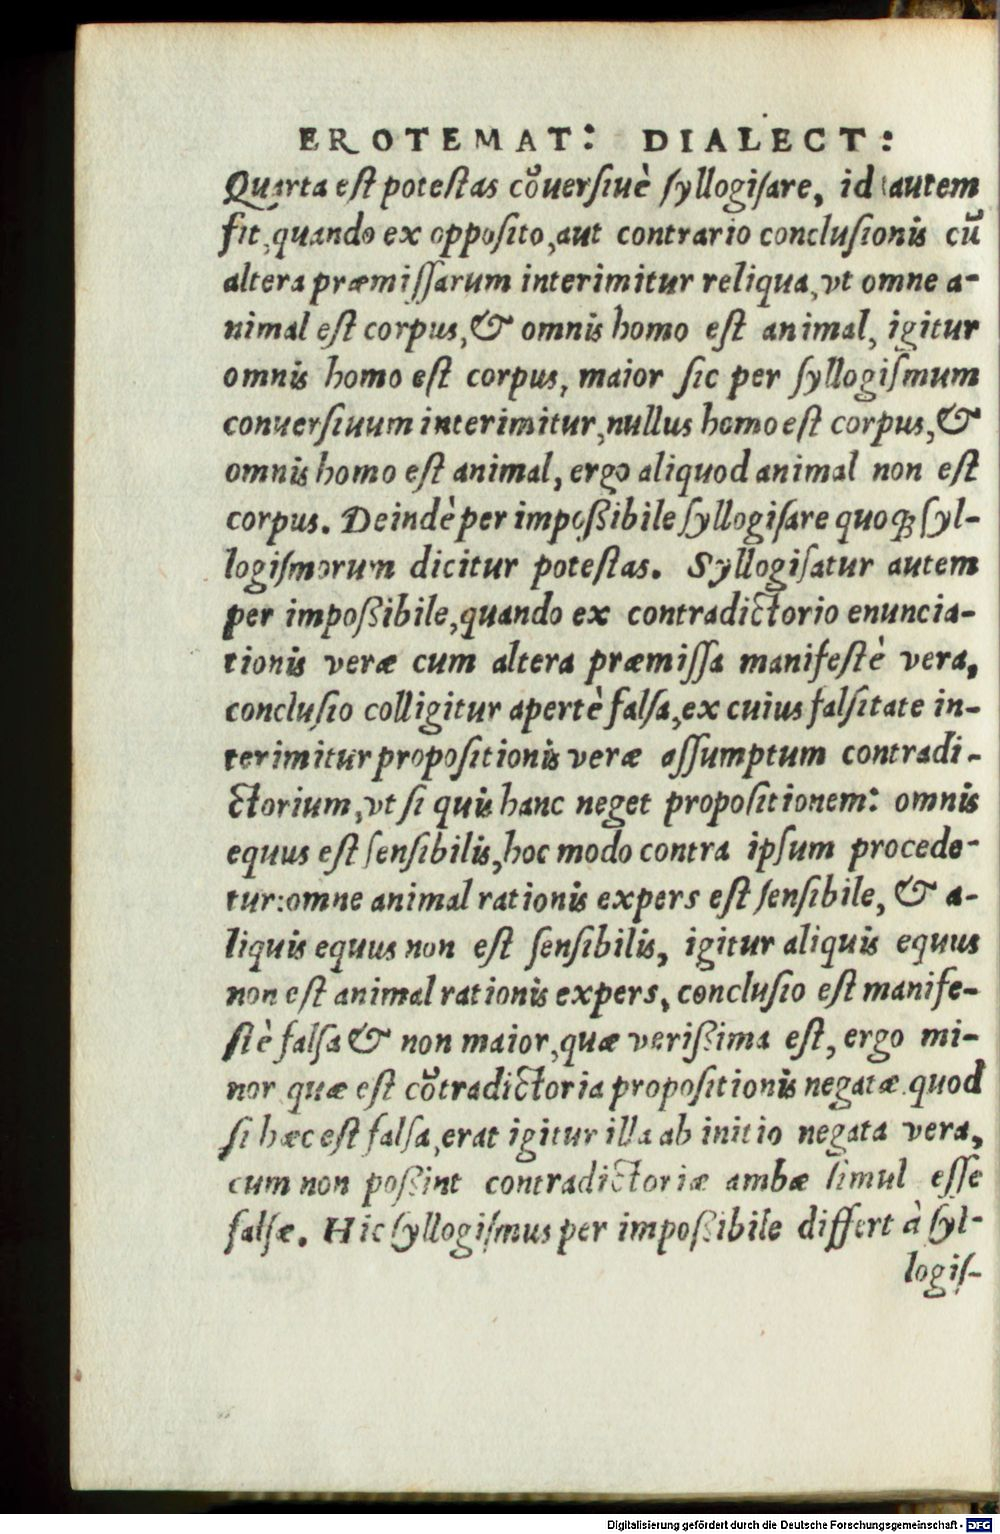 EROTEMAT: DIALECT:
Quarta eſt poteſtas cōuerſiuè ſyllogiſare, id autem
fit, quando ex oppoſito, aut contrario concluſionis cū
altera præmiſſarum interimitur reliqua, vt omne a-
nimal eſt corpus, & omnis homo eſt animal, igitur
omnis homo eſt corpus, maior ſic per ſyllogiſmum
conuerſiuum interimitur, nullus homo eſt corpus, &
omnis homo eſt animal, ergo aliquod animal non eſt
corpus. Deindè per impoßibile ſyllogiſare quoqꝫ ſyl-
logiſmorum dicitur poteſtas. Syllogiſatur autem
per impoßibile, quando ex contradictorio enuncia-
tionis veræ cum altera præmiſſa manifeſtè vera,
concluſio colligitur apertè falſa, ex cuius falſitate in-
terimitur propoſitionis veræ aſſumptum contradi-
ctorium, vt ſi quis hanc neget propoſitionem: omnis
equus eſt ſenſibilis, hoc modo contra ipſum procede-
tur: omne animal rationis expers eſt ſenſibile, & a-
liquis equus non eſt ſenſibilis, igitur aliquis equus
non eſt animal rationis expers, concluſio eſt manife-
ſtè falſa & non maior, quæ verißima eſt, ergo mi-
nor quæ eſt cōtradictoria propoſitionis negatæ. quod
ſi hæc eſt falſa, erat igitur illa ab initio negata vera,
cum non poßint contradictoriæ ambæ ſimul eſſe
falſæ. Hic ſyllogiſmus per impoßibile differt à ſyl-
logiſ-
Digitalisierung gefördert durch die Deutsche Forschungsgemeinschaft - DFG